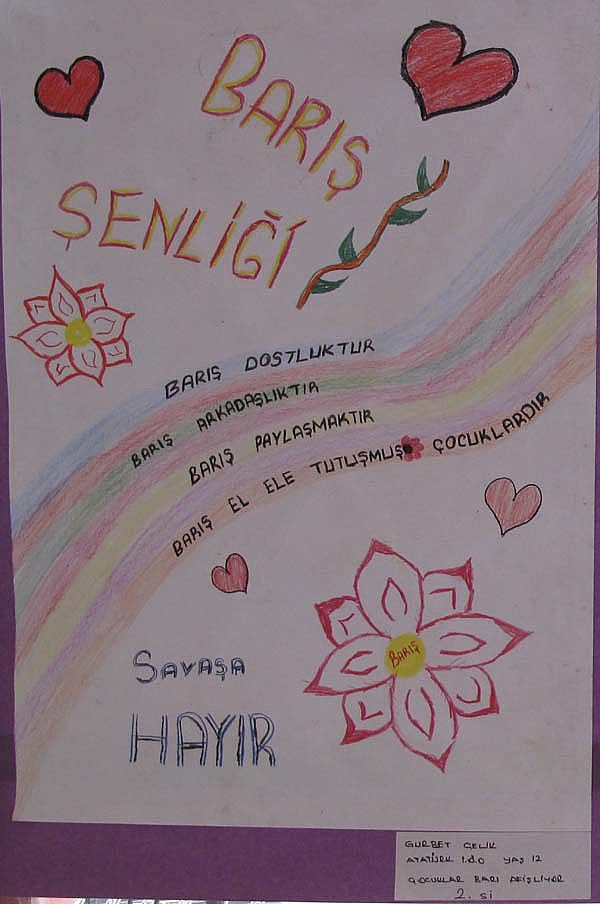 BARIŞ
ŞENLİĞİ
BARIŞ DOSTLUKTUR
BARIŞ ARKADAŞLIKTIR
BARIŞ PAYLAŞMAKTIR
BARIŞ EL ELE TUTUŞMUŞ ÇOCUKLARDIR
BARIŞ
SAVAŞA
HAYIR
GURBET ÇELİK
ATATÜRK İ.Ö.O YAŞ 12
ÇOCUKLAR BARI AFİŞLİYOR
2. Sİ